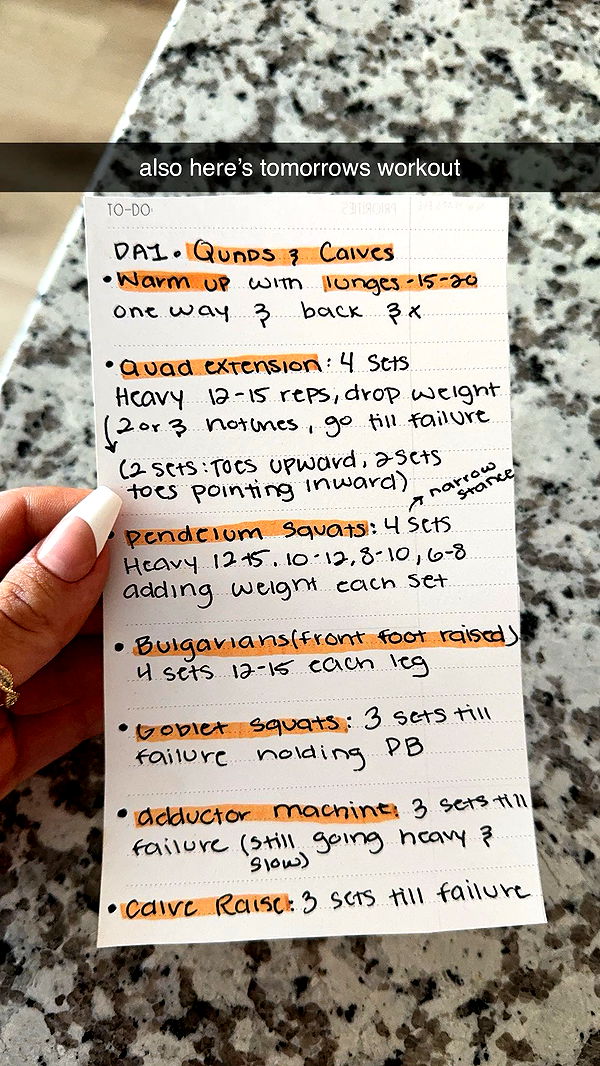 also here's tomorrows workout
TO-DO:
PRIORITIES
DAY. Quads & Calves
• Warm up with lunges - 15-20
one way & back 3x
• Quad extension: 4 sets
Heavy 12-15 reps, drop weight
2 or 3 notches, go till failure
(2 sets: toes upward, 2 sets
toes pointing inward)
narrow
stance
• pendelum squats: 4 sets
Heavy 12-15, 10-12, 8-10, 6-8
adding weight each set
• Bulgarians (front foot raised)
4 sets 12-15 each leg
• Goblet squats: 3 sets till
failure holding DB
• adductor machine: 3 sets till
failure (still going heavy &
slow)
• calve Raise: 3 sets till failure